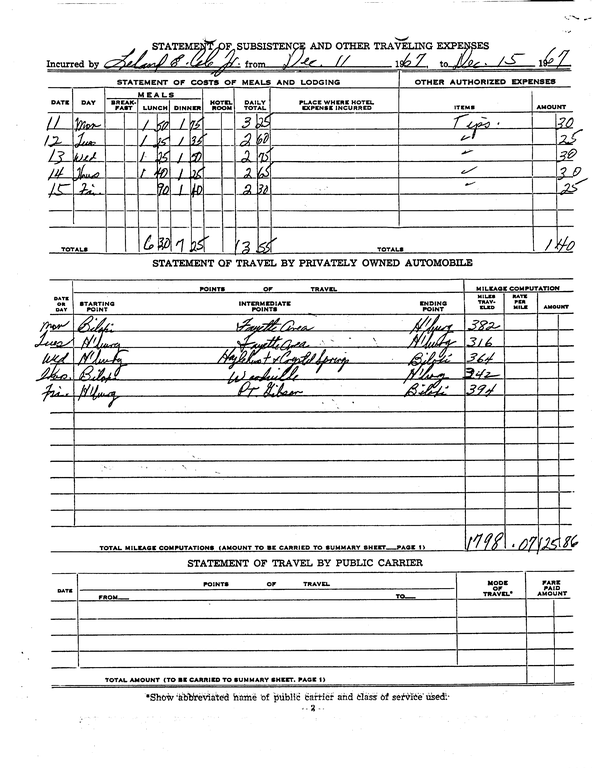 STATEMENT OF SUBSISTENCE AND OTHER TRAVELING EXPENSES
Incurred by Leland Jr. from Dec. 11 1967 to Dec. 15 1967
STATEMENT OF COSTS OF MEALS AND LODGING OTHER AUTHORIZED EXPENSES
MEALS
DATE DAY BREAK-FAST LUNCH DINNER HOTEL ROOM DAILY TOTAL PLACE WHERE HOTEL EXPENSE INCURRED ITEMS AMOUNT
11 Mon 1 50 1 75 3 25 Tips. 30
12 Tues 1 25 1 35 2 60 ✓ 25
13 Wed 1 25 1 50 2 75 ✓ 30
14 Thurs 1 40 1 25 2 65 ✓ 30
15 Fri. 90 1 40 2 30 ✓ 25
TOTALS 6 30 7 25 13 55 TOTALS 1 40
STATEMENT OF TRAVEL BY PRIVATELY OWNED AUTOMOBILE
POINTS OF TRAVEL MILEAGE COMPUTATION
DATE OR DAY STARTING POINT INTERMEDIATE POINTS ENDING POINT MILES TRAV-ELED RATE PER MILE AMOUNT
Mon Biloxi Fayette Area H'burg 382
Tues H'burg Fayette Area H'burg 316
Wed H'burg Hazlehurst + Crystal Springs Biloxi 364
Thurs. Biloxi Woodville H'burg 342
Fri. H'burg Pt. Gibson Biloxi 394
TOTAL MILEAGE COMPUTATIONS (AMOUNT TO BE CARRIED TO SUMMARY SHEET__PAGE 1) 1798 .07 125.86
STATEMENT OF TRAVEL BY PUBLIC CARRIER
DATE POINTS OF TRAVEL MODE OF TRAVEL* FARE PAID AMOUNT
FROM__ TO__
TOTAL AMOUNT (TO BE CARRIED TO SUMMARY SHEET, PAGE 1)
*Show abbreviated name of public carrier and class of service used.
- 2 -